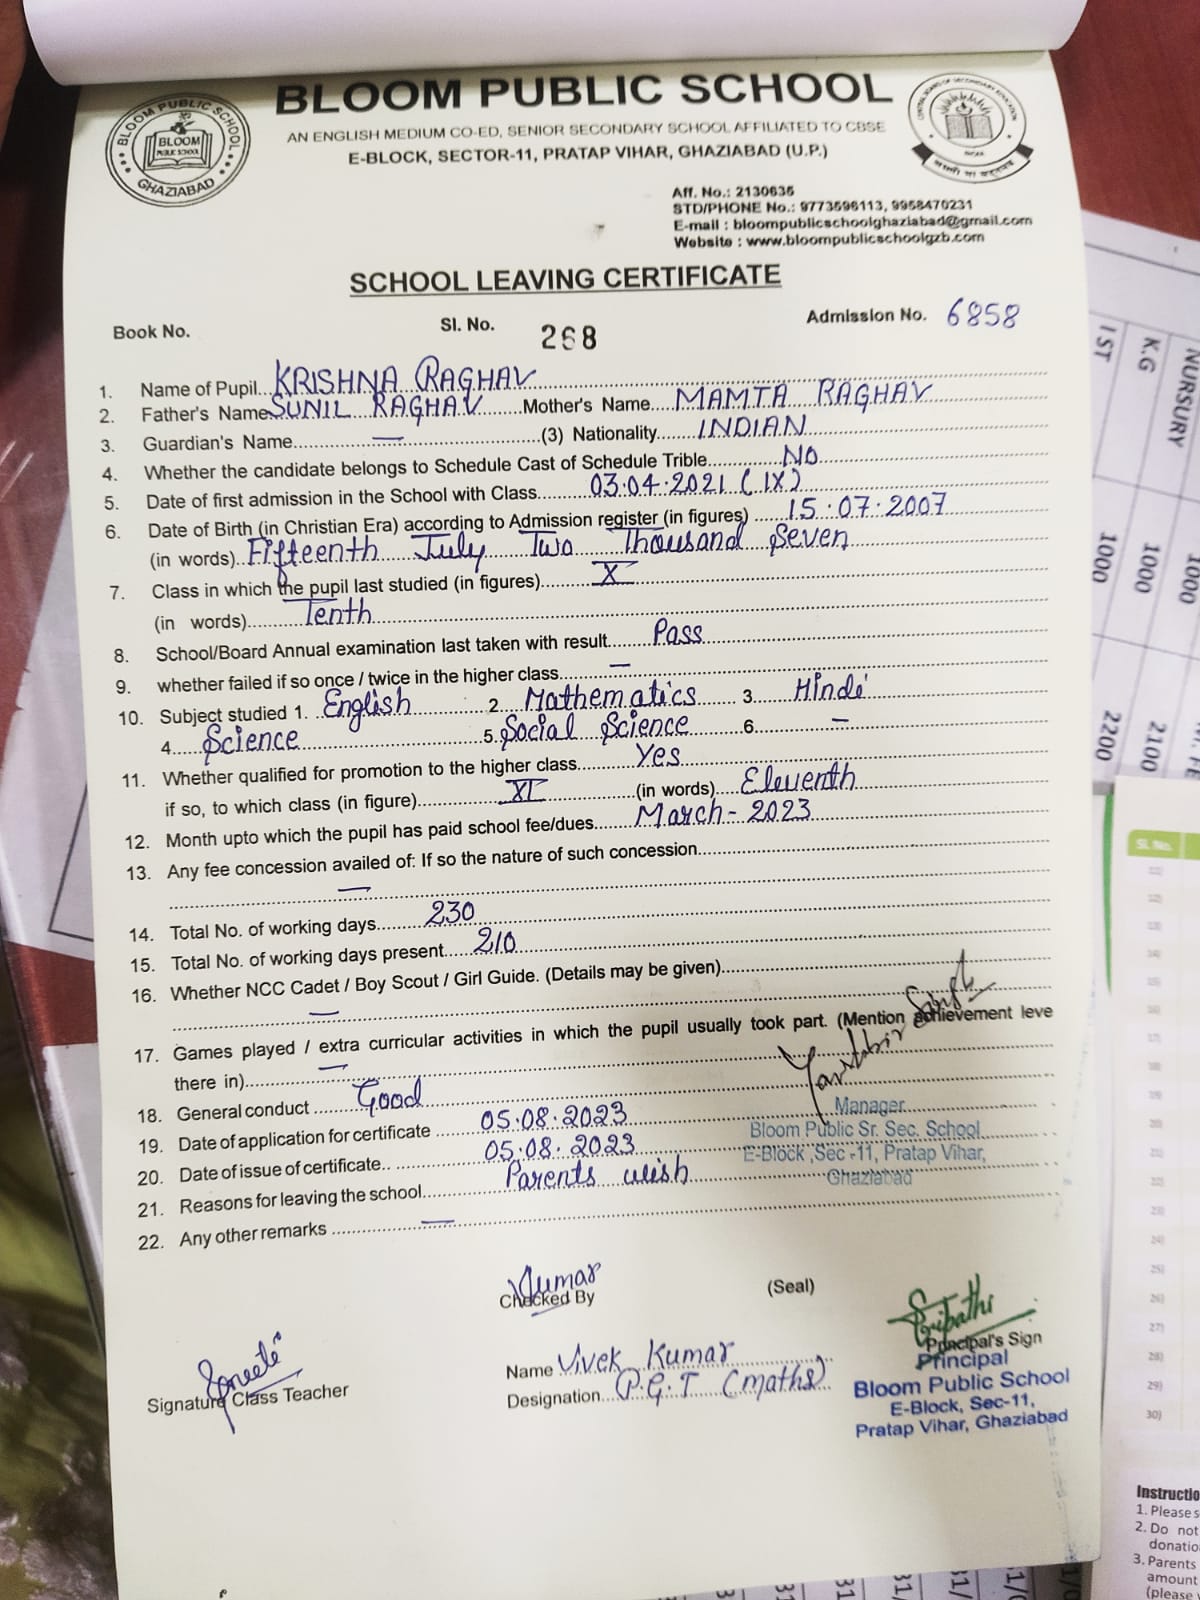 BLOOM PUBLIC SCHOOL
AN ENGLISH MEDIUM CO-ED, SENIOR SECONDARY SCHOOL AFFILIATED TO CBSE
E-BLOCK, SECTOR-11, PRATAP VIHAR, GHAZIABAD (U.P.)
BLOOM PUBLIC SCHOOL
BLOOM
PUBLIC SCHOOL
GHAZIABAD
Aff. No.: 2130635
STD/PHONE No.: 9773596113, 9958470231
E-mail : bloompublicschoolghaziabad@gmail.com
Website : www.bloompublicschoolgzb.com
SCHOOL LEAVING CERTIFICATE
Book No. Sl. No. 268 Admission No. 6858
1. Name of Pupil KRISHNA RAGHAV
2. Father's Name SUNIL RAGHAV Mother's Name MAMTA RAGHAV
3. Guardian's Name — (3) Nationality INDIAN
4. Whether the candidate belongs to Schedule Cast of Schedule Trible NO
5. Date of first admission in the School with Class 03.04.2021 (IX)
6. Date of Birth (in Christian Era) according to Admission register (in figures) 15.07.2007
(in words) Fifteenth July Two Thousand Seven
7. Class in which the pupil last studied (in figures) X
(in words) Tenth
8. School/Board Annual examination last taken with result Pass
9. whether failed if so once / twice in the higher class —
10. Subject studied 1. English 2. Mathematics 3. Hindi
4. Science 5. Social Science 6. —
11. Whether qualified for promotion to the higher class Yes
if so, to which class (in figure) XI (in words) Eleventh
12. Month upto which the pupil has paid school fee/dues March - 2023
13. Any fee concession availed of: If so the nature of such concession
—
14. Total No. of working days 230
15. Total No. of working days present 210
16. Whether NCC Cadet / Boy Scout / Girl Guide. (Details may be given)
—
17. Games played / extra curricular activities in which the pupil usually took part. (Mention achievement leve
there in) —
18. General conduct Good
19. Date of application for certificate 05.08.2023
20. Date of issue of certificate.. 05.08.2023
21. Reasons for leaving the school Parents wish
22. Any other remarks —
Singh
Manager
Bloom Public Sr. Sec. School
E-Block ,Sec -11, Pratap Vihar,
Ghaziabad
Kumar
Checked By
(Seal)
Signature Class Teacher
Name Vivek Kumar
Designation P.G.T (maths)
Tripathi
Principal's Sign
Principal
Bloom Public School
E-Block, Sec-11,
Pratap Vihar, Ghaziabad
NURSURY 1000
K.G 1000 2100
I ST 1000 2200
Sl. No.
Instructio
1. Please s
2. Do not
donatio
3. Parents
amount
(please